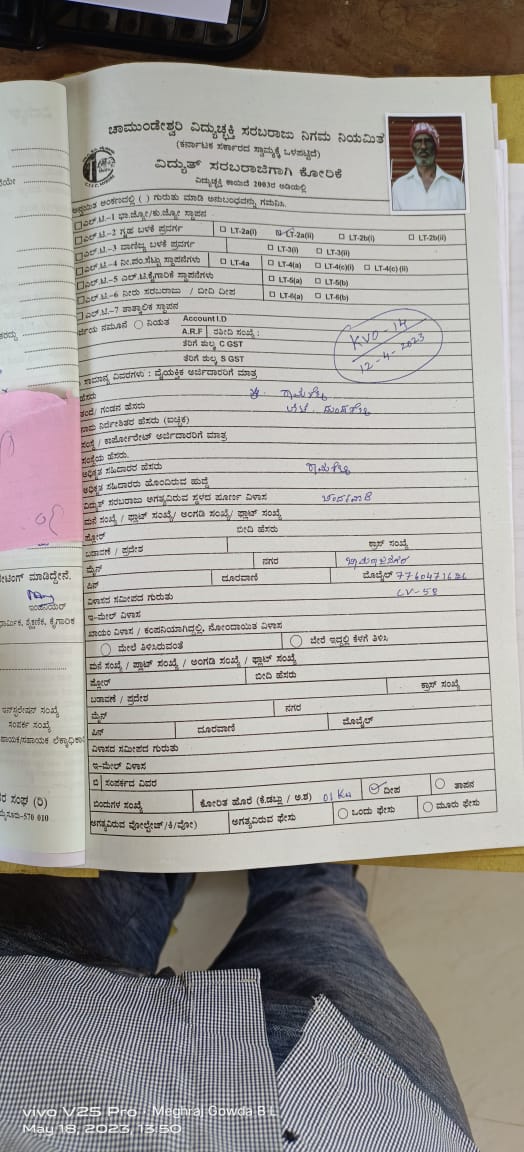 ಚಾಮುಂಡೇಶ್ವರಿ ವಿದ್ಯುಚ್ಛಕ್ತಿ ಸರಬರಾಜು ನಿಗಮ ನಿಯಮಿತ
(ಕರ್ನಾಟಕ ಸರ್ಕಾರದ ಸ್ವಾಮ್ಯಕ್ಕೆ ಒಳಪಟ್ಟಿದೆ)
ವಿದ್ಯುತ್ ಸರಬರಾಜಿಗಾಗಿ ಕೋರಿಕೆ
ವಿದ್ಯುಚ್ಛಕ್ತಿ ಕಾಯಿದೆ 2003ರ ಅಡಿಯಲ್ಲಿ
ಅಂಕಣದಲ್ಲಿ ( ) ಗುರುತು ಮಾಡಿ ಅನುಬಂಧವನ್ನು ಗಮನಿಸಿ.
ಎಲ್.ಟಿ.-1 ಭಾ.ಜ್ಯೋ/ಕು.ಜ್ಯೋ ಸ್ಥಾಪನ
ಎಲ್.ಟಿ.-2 ಗೃಹ ಬಳಕೆ ಪ್ರವರ್ಗ LT-2a(i) LT-2a(ii) LT-2b(i) LT-2b(ii)
ಎಲ್.ಟಿ.-3 ವಾಣಿಜ್ಯ ಬಳಕೆ ಪ್ರವರ್ಗ LT-3(i) LT-3(ii)
ಎಲ್.ಟಿ.-4 ನೀ.ಪಂ.ಸೆಟ್ಟು ಸ್ಥಾಪನಗಳು LT-4a LT-4(a) LT-4(c)(i) LT-4(c) (ii)
ಎಲ್.ಟಿ.-5 ಎಲ್.ಟಿ.ಕೈಗಾರಿಕೆ ಸ್ಥಾಪನಗಳು LT-5(a) LT-5(b)
ಎಲ್.ಟಿ.-6 ನೀರು ಸರಬರಾಜು / ಬೀದಿ ದೀಪ LT-6(a) LT-6(b)
ಎಲ್.ಟಿ.-7 ತಾತ್ಕಾಲಿಕ ಸ್ಥಾಪನ
ನಮೂನೆ ನಿಯತ Account I.D
A.R.F ರಶೀದಿ ಸಂಖ್ಯೆ :
ತೆರಿಗೆ ಶುಲ್ಕ C GST
ತೆರಿಗೆ ಶುಲ್ಕ S GST
KVO-14
12-4-2023
ಸಾಮಾನ್ಯ ವಿವರಗಳು : ವೈಯಕ್ತಿಕ ಅರ್ಜಿದಾರರಿಗೆ ಮಾತ್ರ
ಹೆಸರು
ತಂದೆ/ ಗಂಡನ ಹೆಸರು
ನಾಮ ನಿರ್ದೇಶಿತರ ಹೆಸರು (ಐಚ್ಛಿಕ)
ಸಂಸ್ಥೆ / ಕಾರ್ಪೋರೇಟ್ ಅರ್ಜಿದಾರರಿಗೆ ಮಾತ್ರ
ಸಂಸ್ಥೆಯ ಹೆಸರು.
ಅಧಿಕೃತ ಸಹಿದಾರರ ಹೆಸರು
ಅಧಿಕೃತ ಸಹಿದಾರರು ಹೊಂದಿರುವ ಹುದ್ದೆ
ವಿದ್ಯುತ್ ಸರಬರಾಜು ಅಗತ್ಯವಿರುವ ಸ್ಥಳದ ಪೂರ್ಣ ವಿಳಾಸ
ಮನೆ ಸಂಖ್ಯೆ / ಪ್ಲಾಟ್ ಸಂಖ್ಯೆ/ ಅಂಗಡಿ ಸಂಖ್ಯೆ/ ಫ್ಲಾಟ್ ಸಂಖ್ಯೆ
ಫ್ಲೋರ್ ಬೀದಿ ಹೆಸರು
ಬಡಾವಣೆ / ಪ್ರದೇಶ ಕ್ರಾಸ್ ಸಂಖ್ಯೆ
ಮೈನ್ ನಗರ
ಪಿನ್ ದೂರವಾಣಿ ಮೊಬೈಲ್
ವಿಳಾಸದ ಸಮೀಪದ ಗುರುತು LV-58
ಇ-ಮೇಲ್ ವಿಳಾಸ
ಖಾಯಂ ವಿಳಾಸ / ಕಂಪನಿಯಾಗಿದ್ದಲ್ಲಿ, ನೋಂದಾಯಿತ ವಿಳಾಸ
ಮೇಲೆ ತಿಳಿಸಿರುವಂತೆ ಬೇರೆ ಇದ್ದಲ್ಲಿ ಕೆಳಗೆ ತಿಳಿಸಿ
ಮನೆ ಸಂಖ್ಯೆ / ಪ್ಲಾಟ್ ಸಂಖ್ಯೆ / ಅಂಗಡಿ ಸಂಖ್ಯೆ / ಫ್ಲಾಟ್ ಸಂಖ್ಯೆ
ಫ್ಲೋರ್ ಬೀದಿ ಹೆಸರು
ಬಡಾವಣೆ / ಪ್ರದೇಶ ಕ್ರಾಸ್ ಸಂಖ್ಯೆ
ಮೈನ್ ನಗರ
ಪಿನ್ ದೂರವಾಣಿ ಮೊಬೈಲ್
ವಿಳಾಸದ ಸಮೀಪದ ಗುರುತು
ಇ-ಮೇಲ್ ವಿಳಾಸ
ಬಿ ಸಂಪರ್ಕದ ವಿವರ ದೀಪ ತಾಪನ
ಬಿಂದುಗಳ ಸಂಖ್ಯೆ ಕೋರಿತ ಹೊರೆ (ಕಿ.ಡಬ್ಲು / ಅ.ಶ) 01 Kw
ಅಗತ್ಯವಿರುವ ವೋಲ್ಟೇಜ್/ಕಿ/ವೋ) ಅಗತ್ಯವಿರುವ ಫೇಸು ಒಂದು ಫೇಸು ಮೂರು ಫೇಸು
ಇಂಜಿನಿಯರ್
ಇನ್‌ಸ್ಟಲೇಷನ್ ಸಂಖ್ಯೆ
ಸಂಪರ್ಕ ಸಂಖ್ಯೆ
ಸಂಘ (ರಿ)
ಮೈಸೂರು-570 010
vivo V25 Pro · Meghraj Gowda B L
May 18, 2023, 13:50